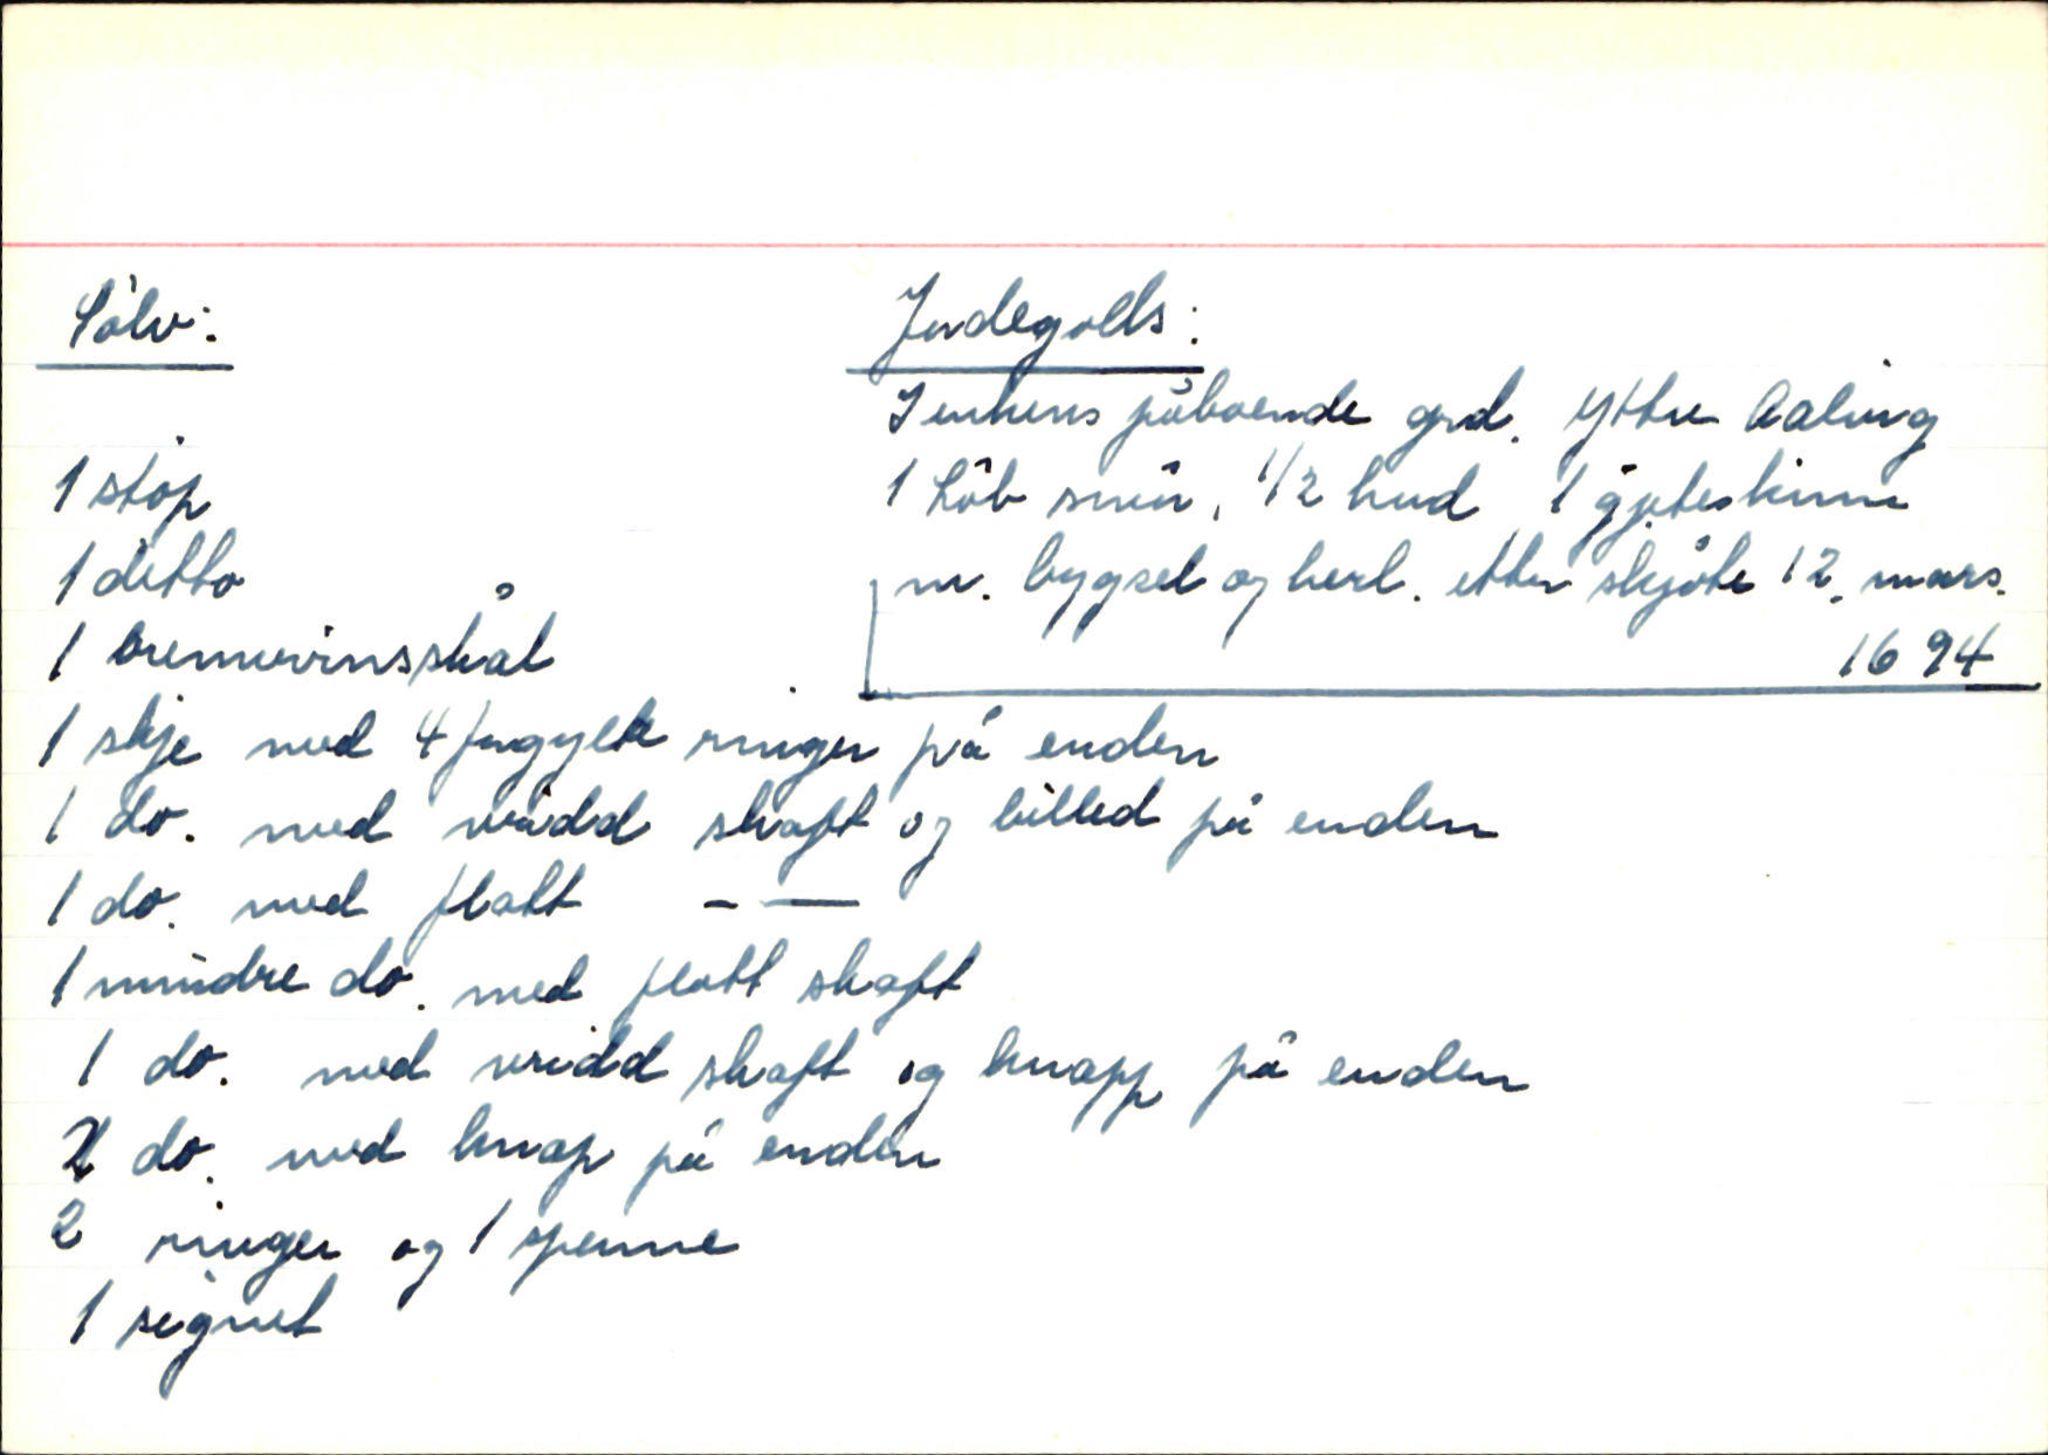 Sölv:
1 stop
1 ditto
1 brennevinsskål
Jordegods:
Enkens påboende grd. Yttre Aaling
1 Löb smör, 1/2 hud 1 gjeteskinn
m. bygsel og herl. etter skjöte 12. mars.
1694
1 skje med 4 forgylte ringer på enden
1 do. med vridd skaft og billed på enden
1 do. med flatt - —
1 mindre do. med flatt skaft
1 do. med vridd skaft og knapp på enden
2 do. med knap på enden
2 ringer og 1 spenne
1 signet